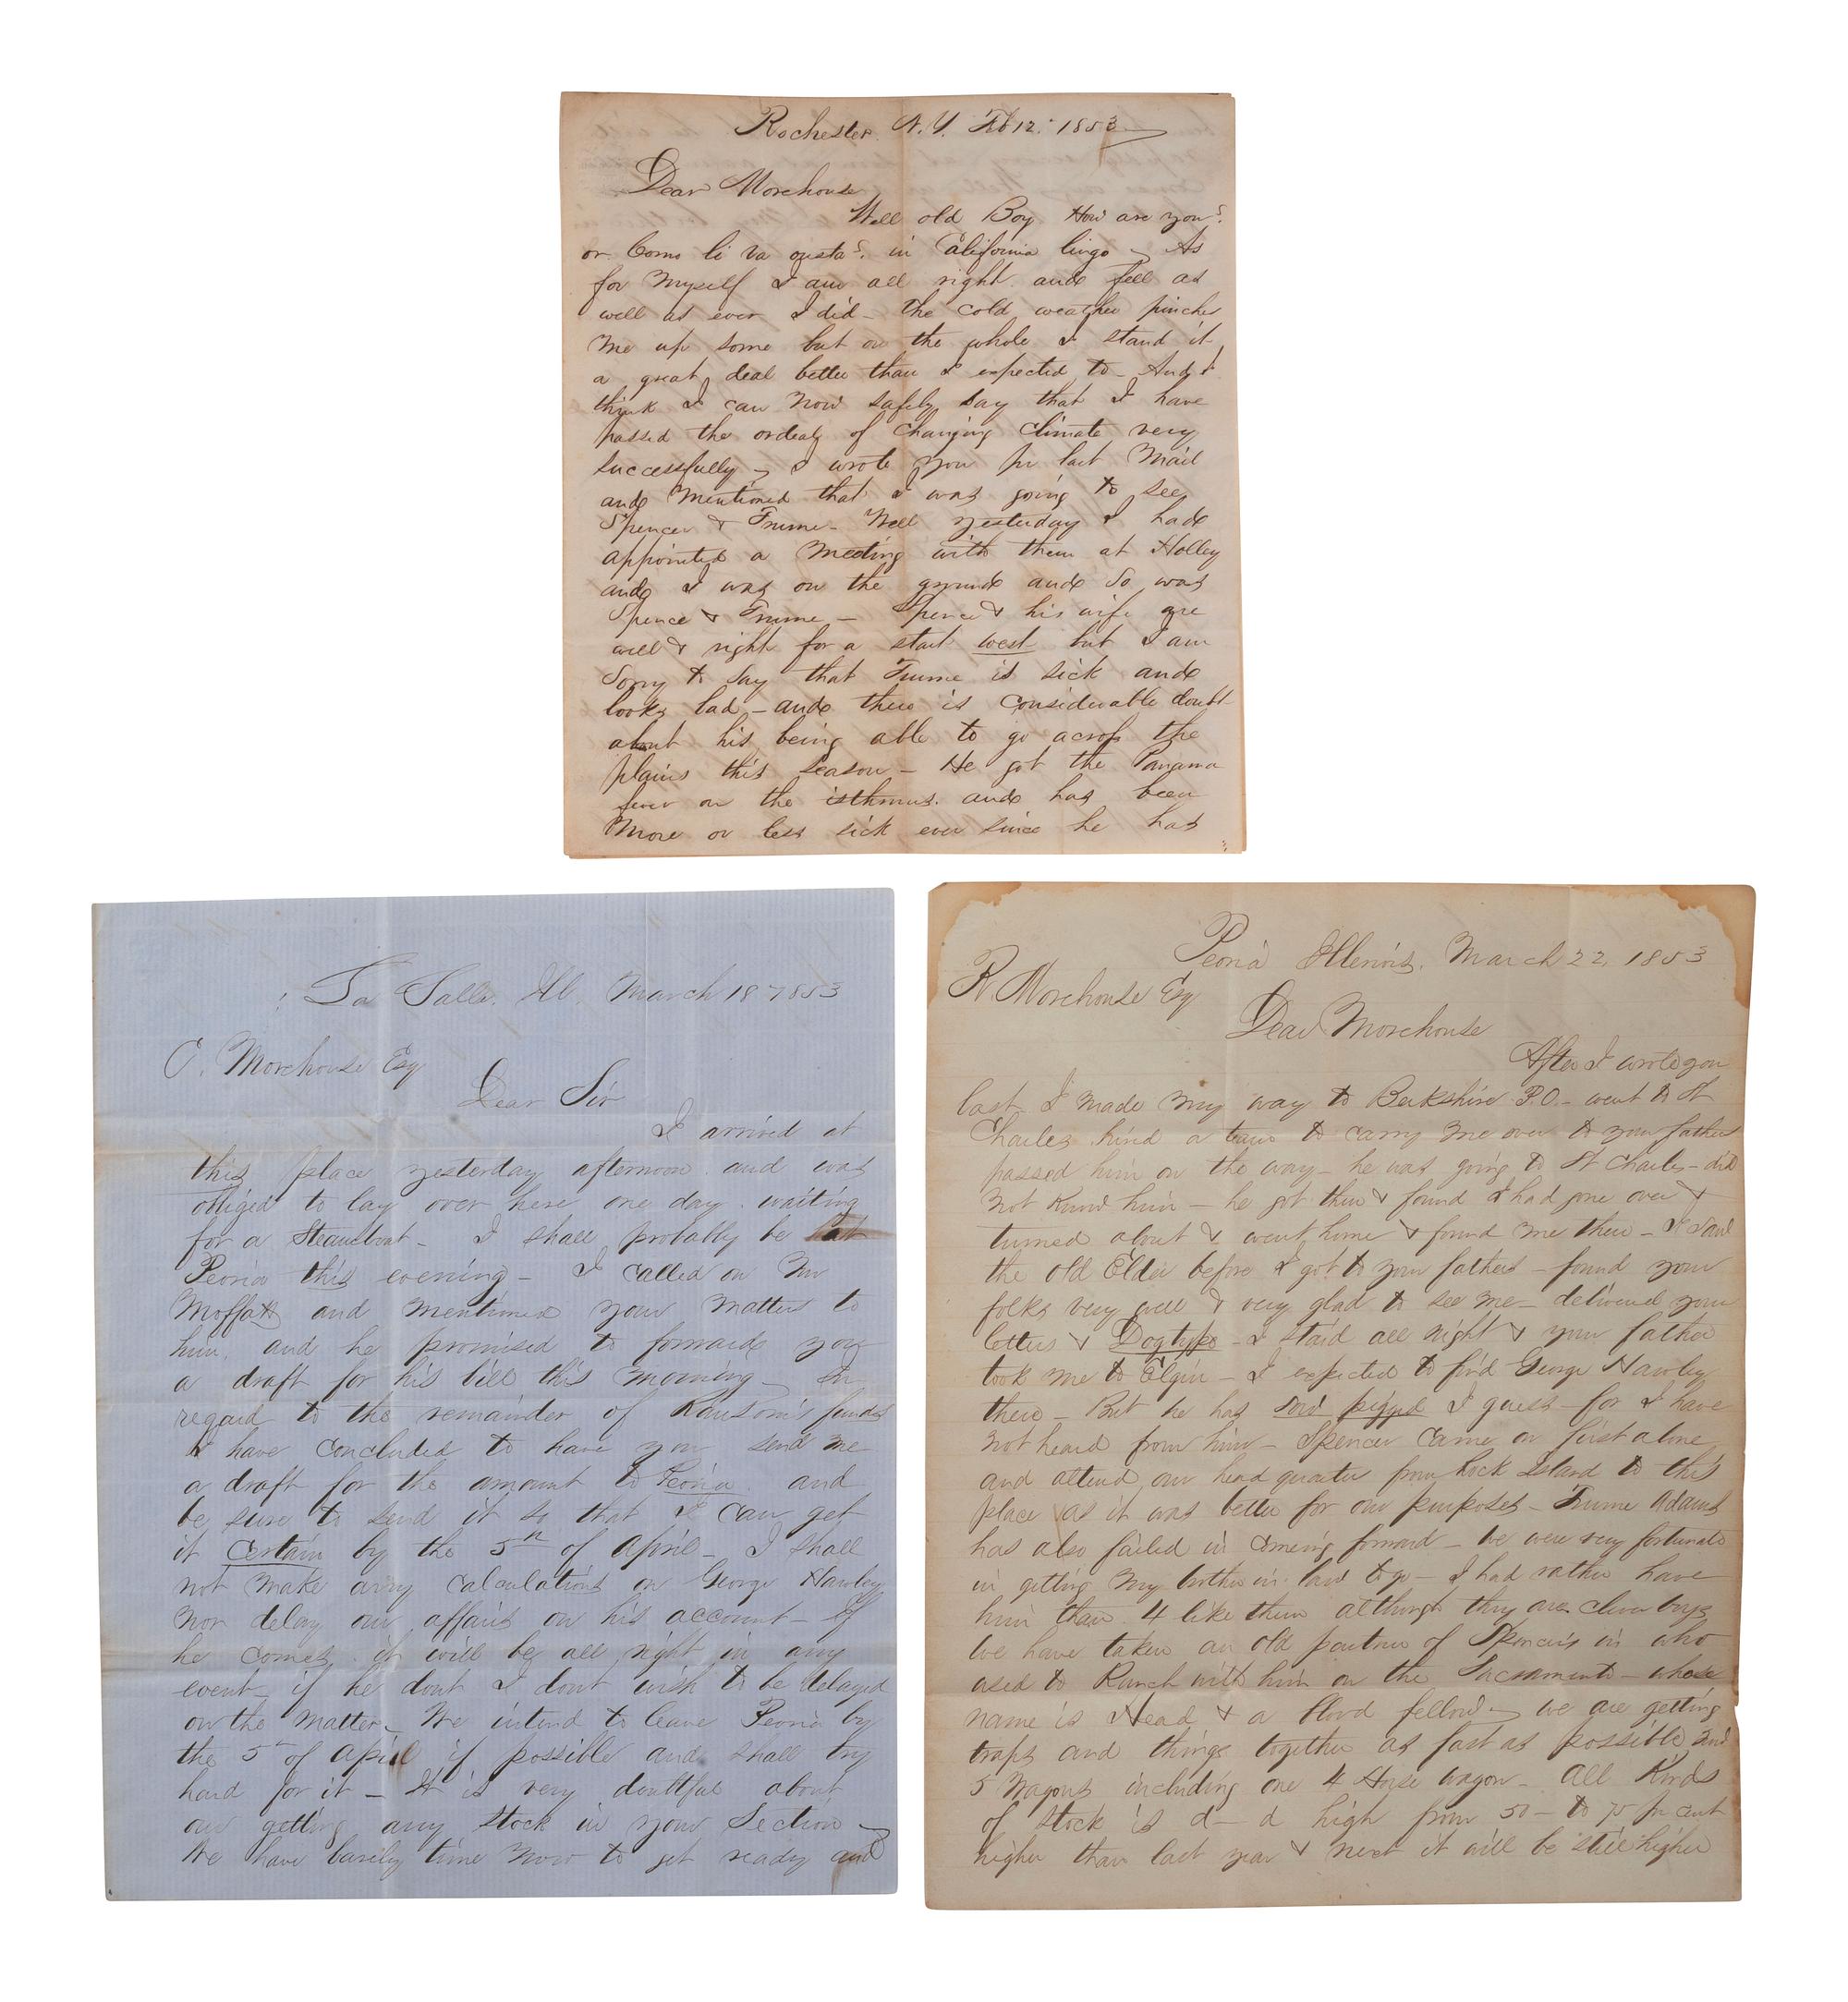 Rochester. N.Y. Feb 12. 1853
Dear Morehouse
Well old Boy How are you?
or Como li va usta? in California lingo - As
for Myself I am all right and feel as
well as ever I did - the cold weather pinches
me up some but on the whole I stand it
a great deal better than I expected to - And I
think I can now safely say that I have
passed the ordeal of changing climate very
successfully - I wrote you pr last Mail
and mentioned that I was going to see
Spencer & Trume - Well yesterday I had
appointed a meeting with them at Holley
and I was on the ground and so was
Spence & Trume - Spence & his wife are
well & right for a start west but I am
Sorry to say that Trume is sick and
looks bad - and there is considerable doubt
about his being able to go across the
plains this season - He got the Panama
fever on the isthmus. and has been
more or less sick ever since he has
La Salle. Ill. March 18 1853
O. Morehouse Esq
Dear Sir
I arrived at
this place yesterday afternoon and was
obliged to lay over here one day waiting
for a Steamboat - I shall probably be at
Peoria this evening - I called on Mr
Moffatt and mentioned your matters to
him. and he promised to forward you
a draft for his bill this morning - In
regard to the remainder of Ransom's funds
I have concluded to have you send me
a draft for the amount to Peoria. and
be sure to send it so that I can get
it certain by the 5th of April - I shall
not make any calculations on George Hawley
nor delay our affairs on his account - if
he comes it will be all right in any
event - if he dont I dont wish to be delayed
on the matter - We intend to leave Peoria by
the 5th of April if possible and shall try
hard for it - It is very doubtful about
our getting any stock in your Section -
We have barely time now to get ready and
Peoria Illinois. March 22, 1853
Morehouse Esq
Dear Morehouse
After I wrote you
last I made my way to Berkshire P.O. - went to St
Charles hired a team to carry me over to your father
passed him on the way - he was going to St Charles - did
not know him - he got there & found I had gone over &
turned about & went home & found me there - I saw
the old Elder before I got to your fathers - found your
folks very well & very glad to see me - delivered your
letters & Dogtype - I staid all night & your father
took me to Elgin - I expected to find George Hawley
there - But he has I guess - for I have
not heard from him - Spencer came on first alone
and our head quarters from Rock Island to this
place as it was better for our purposes - Trume Adams
has also failed in coming forward - we were very fortunate
in getting my brother in law to go - I had rather have
him than 4 like them although they are clever boys
We have taken an old partner of Spencer's in who
used to Ranch with him on the Sacramento - whose
name is Head & a good fellow - we are getting
traps and things together as fast as possible and
5 Wagons including one 4 Horse wagon - All Kinds
of stock is d—d high from 50 - to 75 pr cent
higher than last year & next it will be still higher